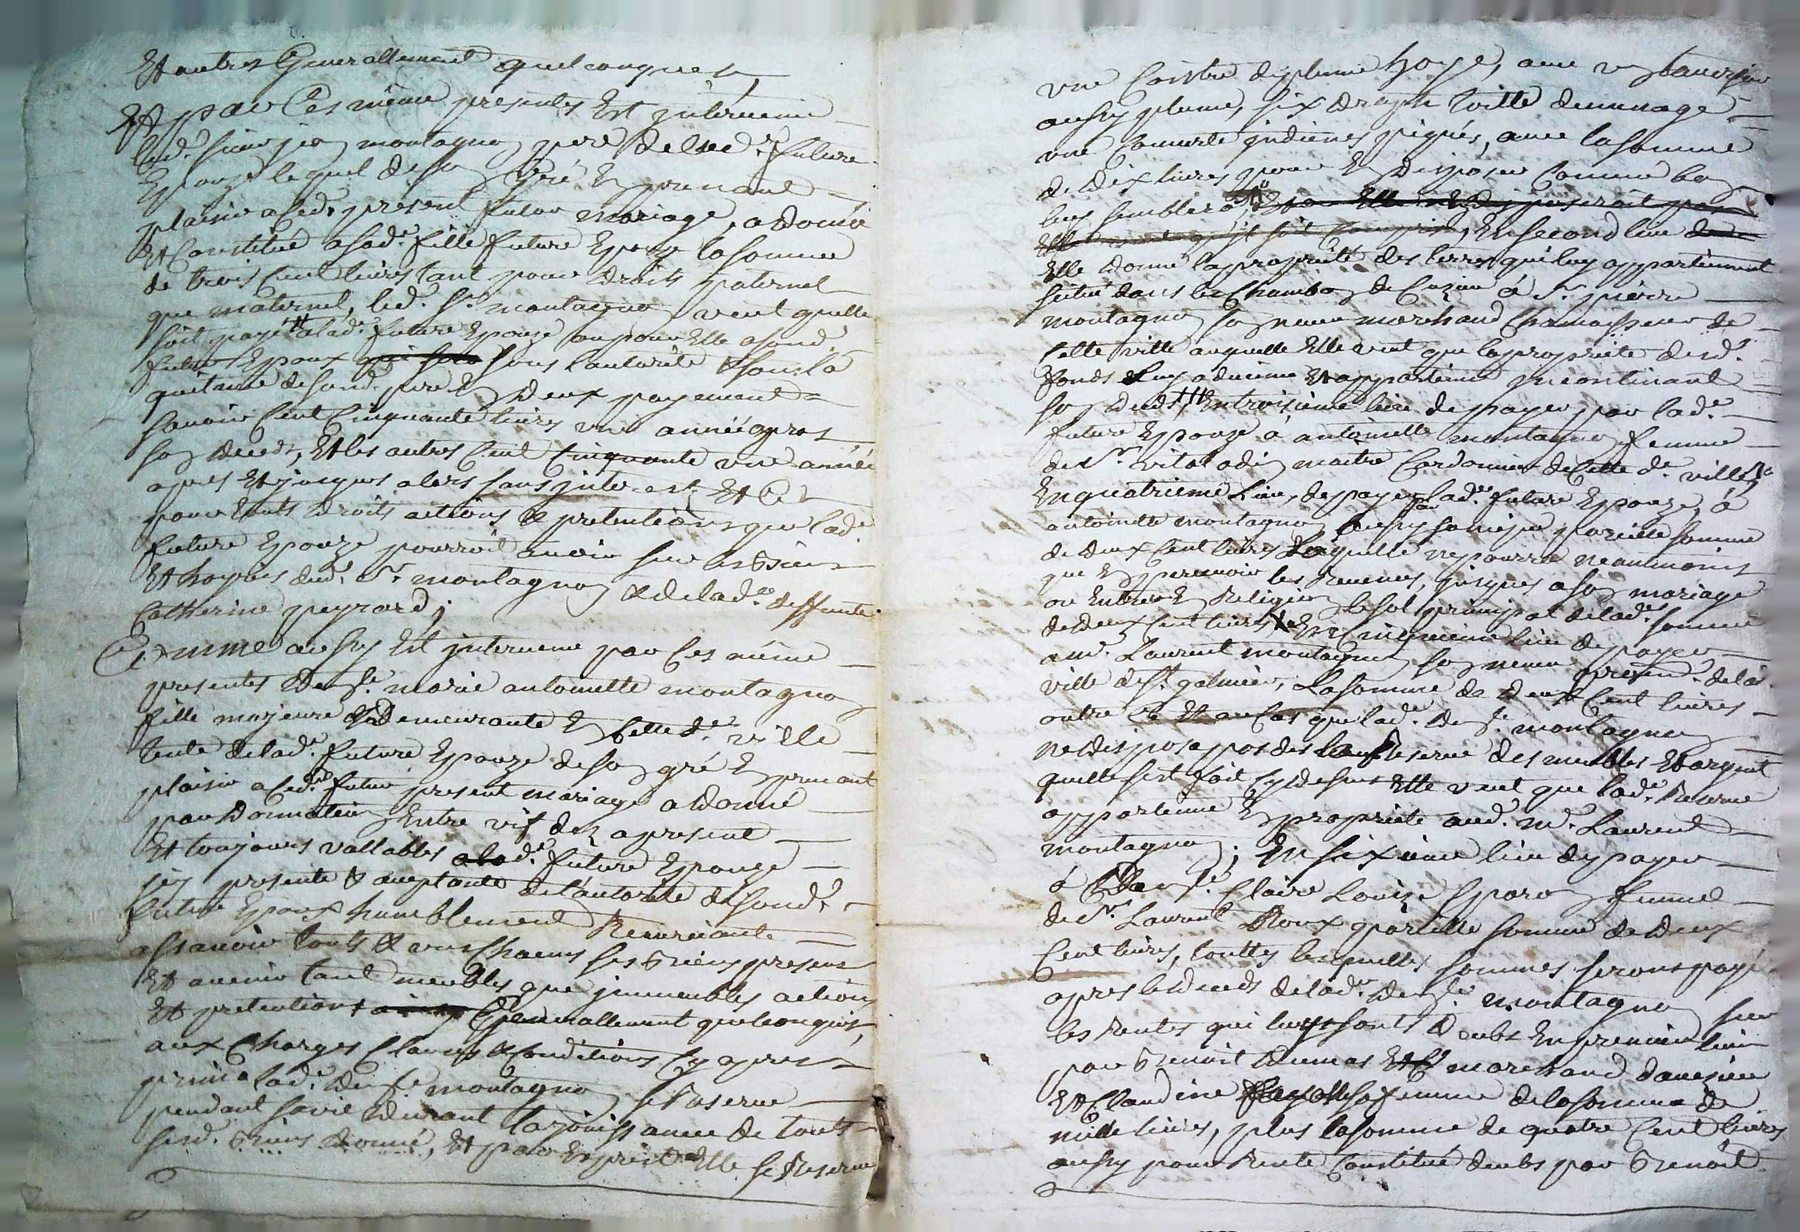 Et autres Generallement quelconques
Et par Ces même presentes Est intervenu
led. sieur jean montagnon pere de lad. future
Epouze lequel de son Gré En prenant
plaisir a ced. present futur mariage, a donné
Et Constitué a sad. fille future Epouze la somme
de trois Cent livres tant pour droits paternel
que maternel, led. Sr. montagnon veut quelle
soit payé a lad. future Epouze ou pour Elle a sond.
futur Epoux sous l'autorité & sous la
quitance de sond. pere En deux payement
savoir Cent Cinquante livres une année apres
son deceds, Et les autres Cent Cinquante une année
apres Et jusques alors sans interest Et Ce
pour touts droits actions & pretentions que lad.
future Epouze pourroit avoir sur les biens
Et hoyries dud. Sr. montagnon & de lad. deffunte
Catherine peyrard;
Comme aussy Est intervenue par Ces même
presentes Delle. marie antoinette montagnon
fille majeure demeurante En cette de. ville
tente de lad. future Epouze de son gré En prenant
plaisir a ced. futur present mariage a donné
par Donnation Entre vif dez apresent
Et toujours vallables a lad. future Epouze
presente & aceptante de l'autorité de sond.
futur Epoux humblement Remerciante
assavoir touts & uns Chacuns ses biens present
Et avenir tant meubles que immeubles actions
Et pretentions Generallement quelconques,
aux Charges Clauses & Conditions Cy apres
primo lad. Delle. montagnon se Reserve
pendant sa vie durant la jouissance de touts
sesd. biens donné, Et par Exprest Elle se Reserve
une Coistre de plume
aussy plume, six draps toille de menage
une Couverte indiene piquée, avec la somme
de dix livres pour En disposer Comme bon
luy semblera, En second lieu
Elle donne la proprieté des terres qui luy appartiennent
scitué dans les Chambon de Cuzieu à Sr. pierre
montagnon son neveu marchand Chamoisseur de
Cette ville auquelle Elle veut que la proprieté desd.
fonds luy advienne Et appartienne incontinant
son deceds En troisieme lieu de payer par lad.
future Epouze à antoinette montagnon femme
de Sr. maitre Cordonnier de Cette de. ville
En quatrieme lieu, de payer par lad. future Epouze, à
antoinette montagnon aussy sa niepce, pareille somme
de deux Cent livres Laquelle ne pourra neantmoins
que En percevoir les Revenus, jusques a son mariage
ou Entrée En Religion, le sol principal de lad. somme
de deux cent livres En Cinquieme lieu de payer
a mr. Laurent montagnon son neveu de la
ville de St. galmier, La somme de deux Cent livres
outre Ce Et au Cas que lad. Delle. montagnon
ne dispose pas des Reserve des meubles Et argent
quelle s'est fait Cy dessus Elle veut que lad. Reserve
appartienne En proprieté aud. mr. Laurent
montagnon; En sixieme lieu de payer
à Delle. Claire Louize femme
de Sr. Laurent Roux pareille somme de deux
Cent livres, touttes lesquelles sommes seront payé
apres le deceds de lad. Delle. montagnon sur
les Rentes qui luy sont doubs En premier lieu
par Benoit Dumas marchand
Et Claudine sa femme de la somme de
mille livres, plus la somme de quatre Cent livres
aussy pour Rente Constitué deubs par Benoit